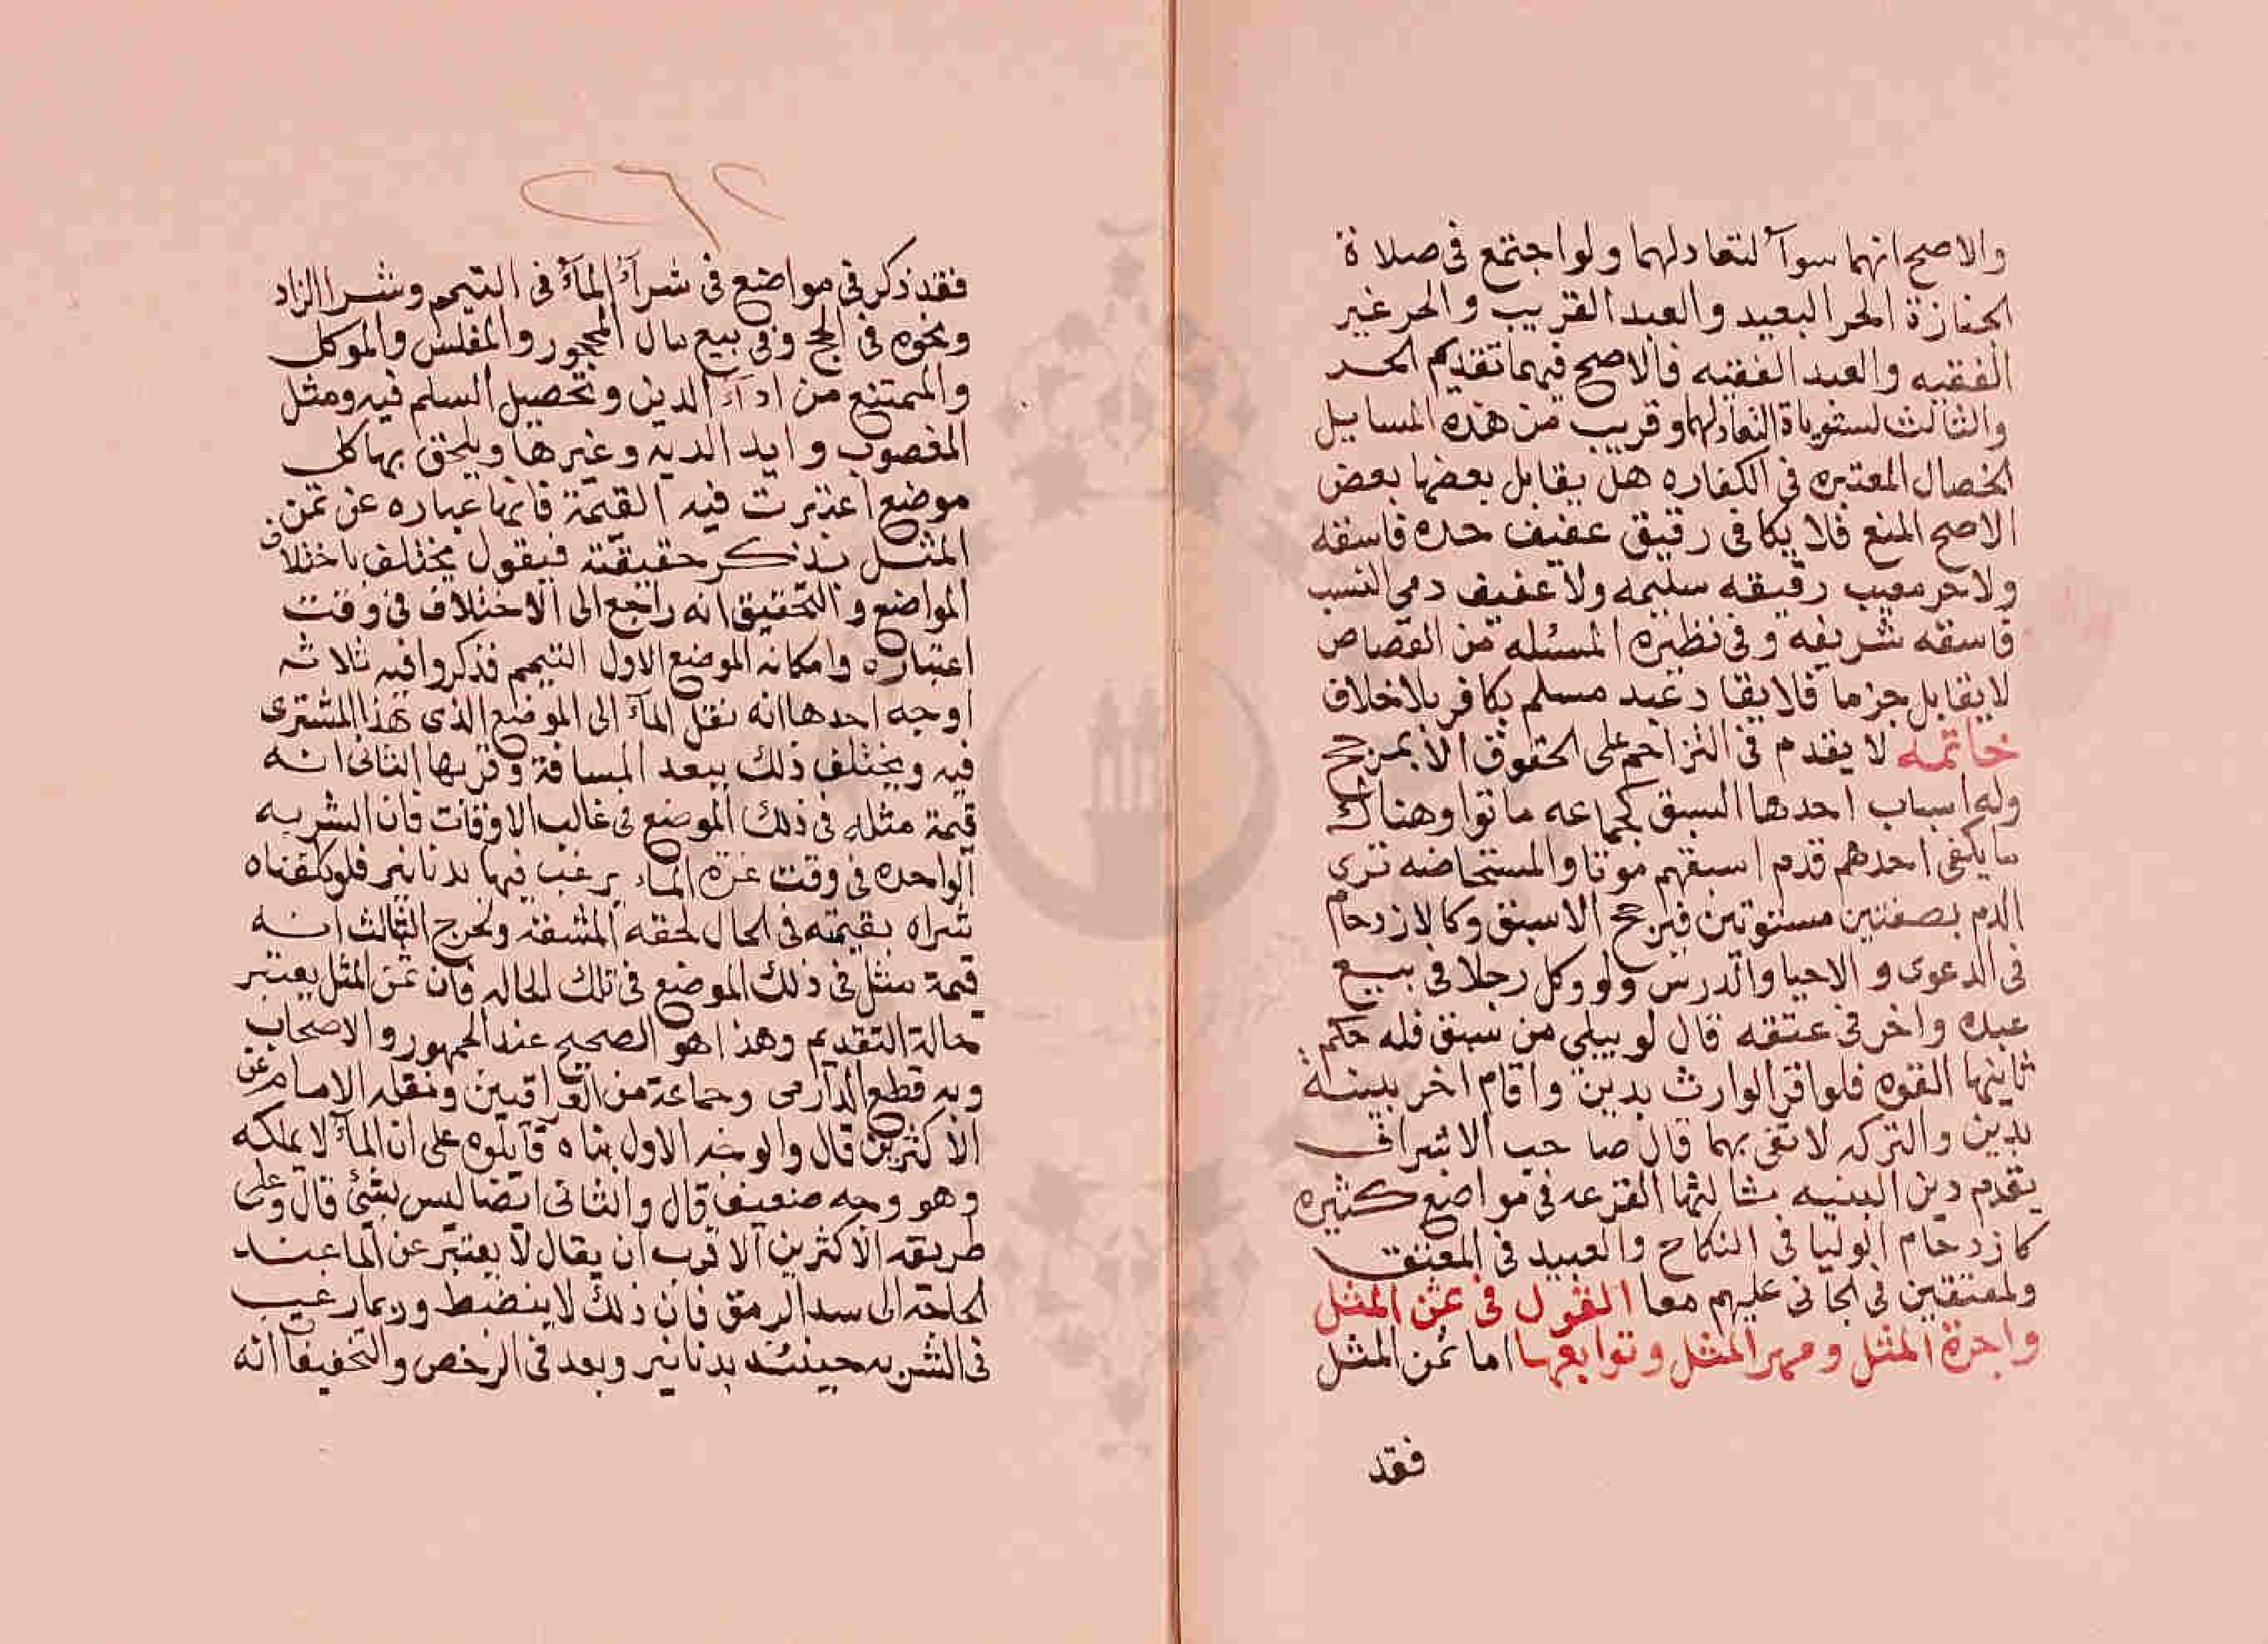 والاصح انهما سوآء لتعادلهما ولو اجتمع فى صلاة
الجنازة الحر البعيد والعبد القريب والحر غير
الفقيه والعبد الفقيه فالاصح فيهما تقديم الحر
والثالث لستوياة التعادلهما وقريب من هذه المسايل
الخصال المعتبره فى الكفاره هل يقابل بعضها بعض
الاصح المنع فلا يكافى رقيق عفيف حره فاسقه
ولا حر معيب رقيقه سليمه ولا عفيف دمى النسب
فاسقه شريفه وفى نظيره المسئله من القصاص
لا يقابل جزما فلا يقاد عبد مسلم بكافر بلا خلاف
خاتمه لا يقدم فى التزاحم على الحقوق الا بمرجح
وله اسباب احدها السبق كجماعه ماتوا وهناك
ما يكفى احدهم قدم اسبقهم موتا والمستحاضه ترى
الدم بصفتين مستوتين فيرجح الاسبق وكالازدحام
فى الدعوى والاحيا والدرس ولو وكل رجلا فى بيع
عبده واخر فى عتقه قال لو بيلى من سبق فله حكم
ثانيها القوه فلو اقر الوارث بدين واقام اخر ببينة
بدين والتركه لا تفى بهما قال صاحب الاشراف
يقدم دين البينيه ثالثها القرعه فى مواضع كثيره
كازدحام الوليا فى النكاح والعبيد فى المعتق
ولمفتقين فى الجانى عليهم معا القول فى ثمن المثل
واجرة المثل ومهر المثل وتوابعها اما ثمن المثل
فقد
٢٦٢
فقد ذكر فى مواضع فى شرآء المآء فى التيمم وشرا الزاد
ونحوه فى الحج وفى بيع مال المحجور والمفلس والموكل
والممتنع من ادآء الدين وتحصيل السلم فيه ومثل
المغصوب وايد الديه وغيرها ويلحق بها كل
موضع اعتبرت فيه القيمة فانها عباره عن ثمن
المثل بذكر حقيقته فيقول يختلف باختلاف
المواضع والتحقيق انه راجع الى الاختلاف فى وقت
اعتباره وامكانه الموضع الاول التيمم فذكروا فيه ثلاثه
اوجه احدها انه نقل المآء الى الموضع الذى هذا المشترى
فيه ويختلف ذلك ببعد المسافة وقربها الثانى انه
قيمة مثله فى ذلك الموضع فى غالب الاوقات فان الشربه
الواحده فى وقت عزه الماء يرغب فيها بدنانير فلو كلفناه
شراه بقيمته فى الحال لحقه المشقه ولحرج الثالث انه
قيمة مثل فى ذلك الموضع فى تلك الحاله فان ثمن المثل يعتبر
حالة التقديم وهذا هو الصحيح عند الجمهور والاصحاب
وبه قطع الدارمى وجماعة من العراقيين ونقله الامام عن
الاكثرين قال والوجه الاول بناه قآيلوه على ان المآء لا يملكه
وهو وجه ضعيف قال والثانى ايضا ليس بشئ قال وعلى
طريقه الاكثرين الاقرب ان يقال لا يعتبر عن الما عند
الحاجة الى سد الرمق فان ذلك لا ينضبط وربما رغيب
فى الشربه حينئد بدنانير وبعد فى الرخص والتخفيفا انه